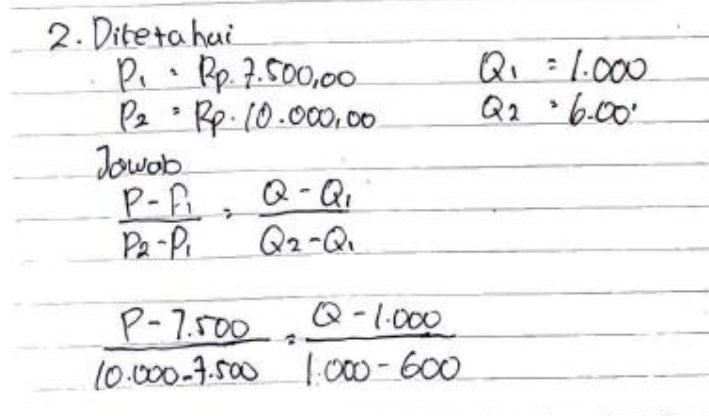 2. Diketahui
P₁ = Rp. 7.500,00 Q₁ = 1.000
P₂ = Rp. 10.000,00 Q₂ = 6.00'
Jawab
P - P₁ / P₂ - P₁ = Q - Q₁ / Q₂ - Q₁
P - 7.500 / 10.000 - 7.500 = Q - 1.000 / 1.000 - 600